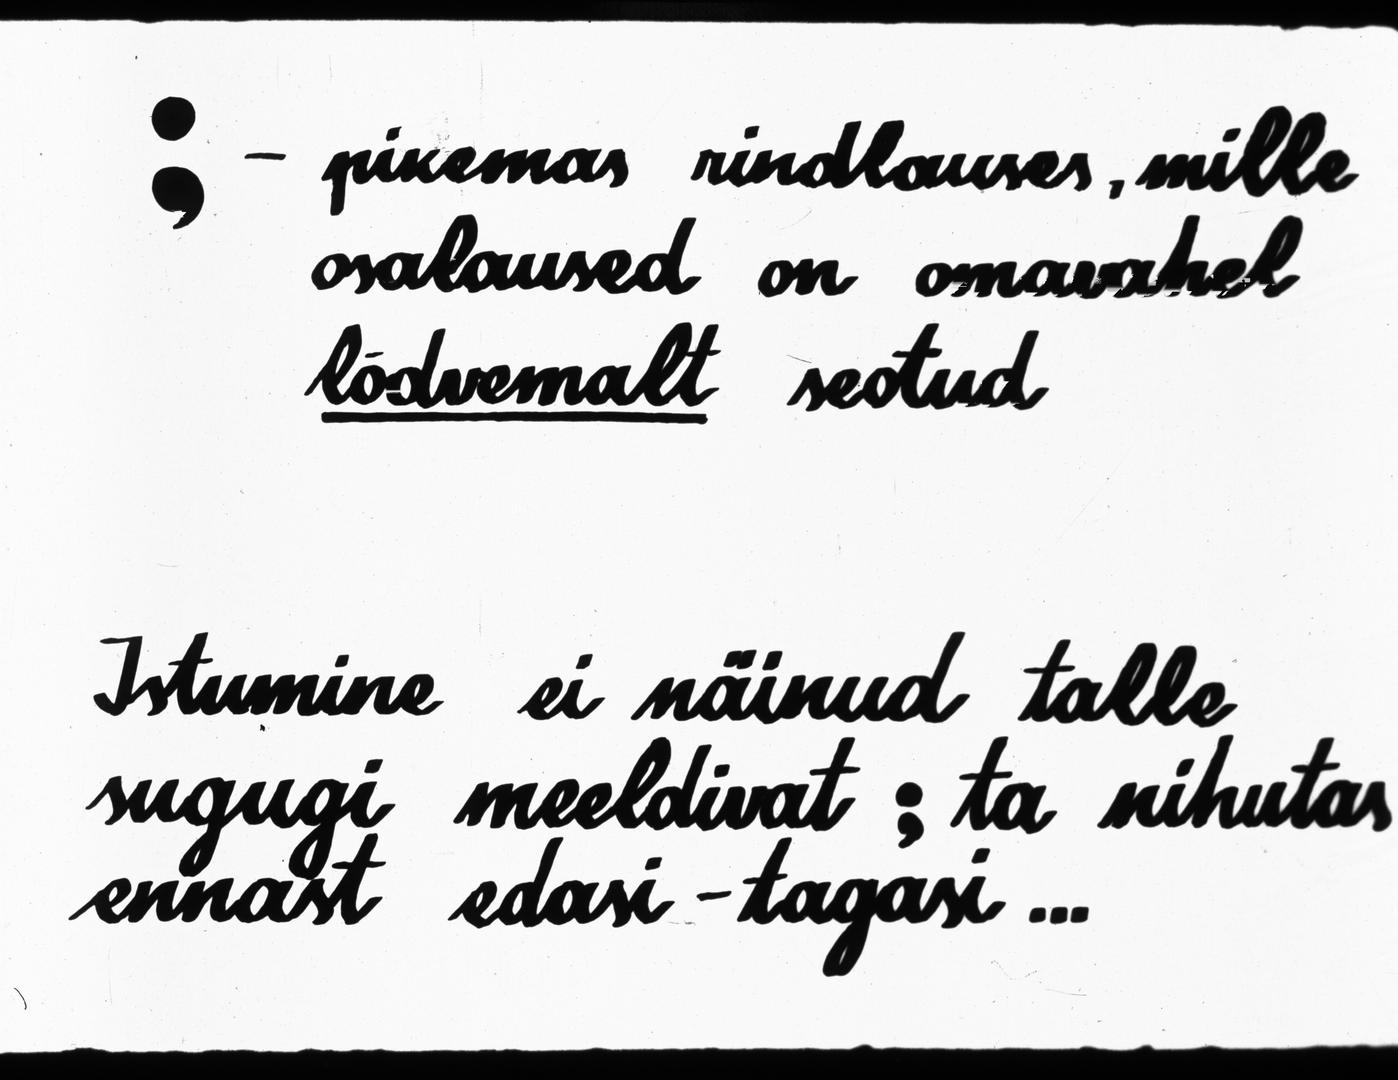 ; – pikemas rindlauses, mille
osalaused on omavahel
lõdvemalt seotud
Istumine ei näinud talle
sugugi meeldivat ; ta nihutas
ennast edasi-tagasi ...